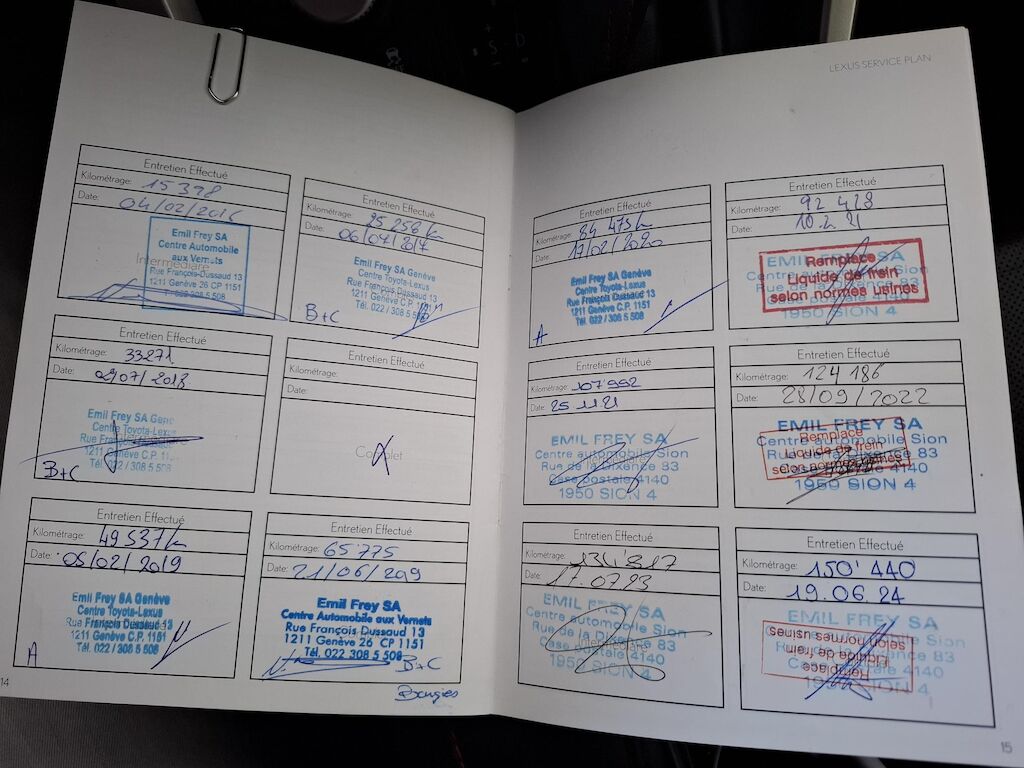 LEXUS SERVICE PLAN
Entretien Effectué
Kilométrage: 15 398
Date: 04/02/2016
Emil Frey SA
Centre Automobile
aux Vernets
Intermédiaire
Rue François-Dussaud 13
1211 Genève 26 CP 1151
T. 022 308 5 508
Entretien Effectué
Kilométrage: 25 256 km
Date: 06/04/2017
Emil Frey SA Genève
Centre Toyota-Lexus
Rue François Dussaud 13
1211 Genève C.P. 1151
Tél. 022 / 308 5 508
B+C
Entretien Effectué
Kilométrage: 33271
Date: 02/07/2018
Emil Frey SA Genè
Centre Toyota-Lexus
Rue François Dussaud
1211 Genève C.P. 11
Tél. 022 / 308 5 508
B+C
Entretien Effectué
Kilométrage:
Date:
Complet
Entretien Effectué
Kilométrage: 49 537 km
Date: 05/02/2019
Emil Frey SA Genève
Centre Toyota-Lexus
Rue François Dussaud 13
1211 Genève C.P. 1151
Tél. 022 / 308 5 508
A
Entretien Effectué
Kilométrage: 65 775
Date: 21/06/209
Emil Frey SA
Centre Automobile aux Vernets
Rue François Dussaud 13
1211 Genève 26 CP 1151
Tél. 022 308 5 508
B+C
Bougies
14
Entretien Effectué
Kilométrage: 84 473 km
Date: 17/02/2020
Emil Frey SA Genève
Centre Toyota-Lexus
Rue François Dussaud 13
1211 Genève C.P. 1151
Tél. 022 / 308 5 508
A
Entretien Effectué
Kilométrage: 92 428
Date: 10.2.21
EMIL FREY SA
Centre automobile Sion
Rue de la
1950 SION 4
Remplacé
Liquide de frein
selon normes usines
Entretien Effectué
Kilométrage: 107'992
Date: 25 11 21
EMIL FREY SA
Centre automobile Sion
Rue de la Dixence 83
Case postale 4140
1950 SION 4
Entretien Effectué
Kilométrage: 124 186
Date: 28/09/2022
EMIL FREY SA
Centre automobile Sion
Rue de la Dixence 83
Case postale 4140
1950 SION 4
Remplacé
Liquide de frein
selon normes usines
Entretien Effectué
Kilométrage: 134'817
Date: 17.07.23
EMIL FREY SA
Centre automobile Sion
Rue de la Dixence 83
Intermédiaire
Case postale 4140
1950 SION 4
Entretien Effectué
Kilométrage: 150'440
Date: 19.06.24
EMIL FREY SA
Centre automobile Sion
Rue de la Dixence 83
Case postale 4140
1950 SION 4
Remplacé
Liquide de frein
selon normes usines
15